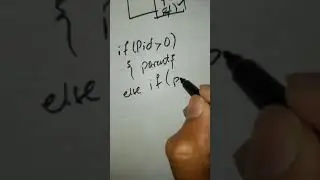 if (Pid > 0)
{ parent}
else if (P